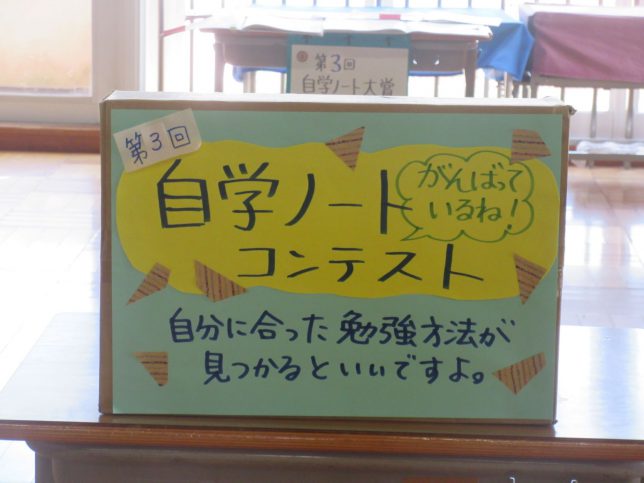 第3回
自学ノート大賞
第3回
自学ノート
コンテスト
がんばって
いるね！
自分に合った勉強方法が
見つかるといいですよ。